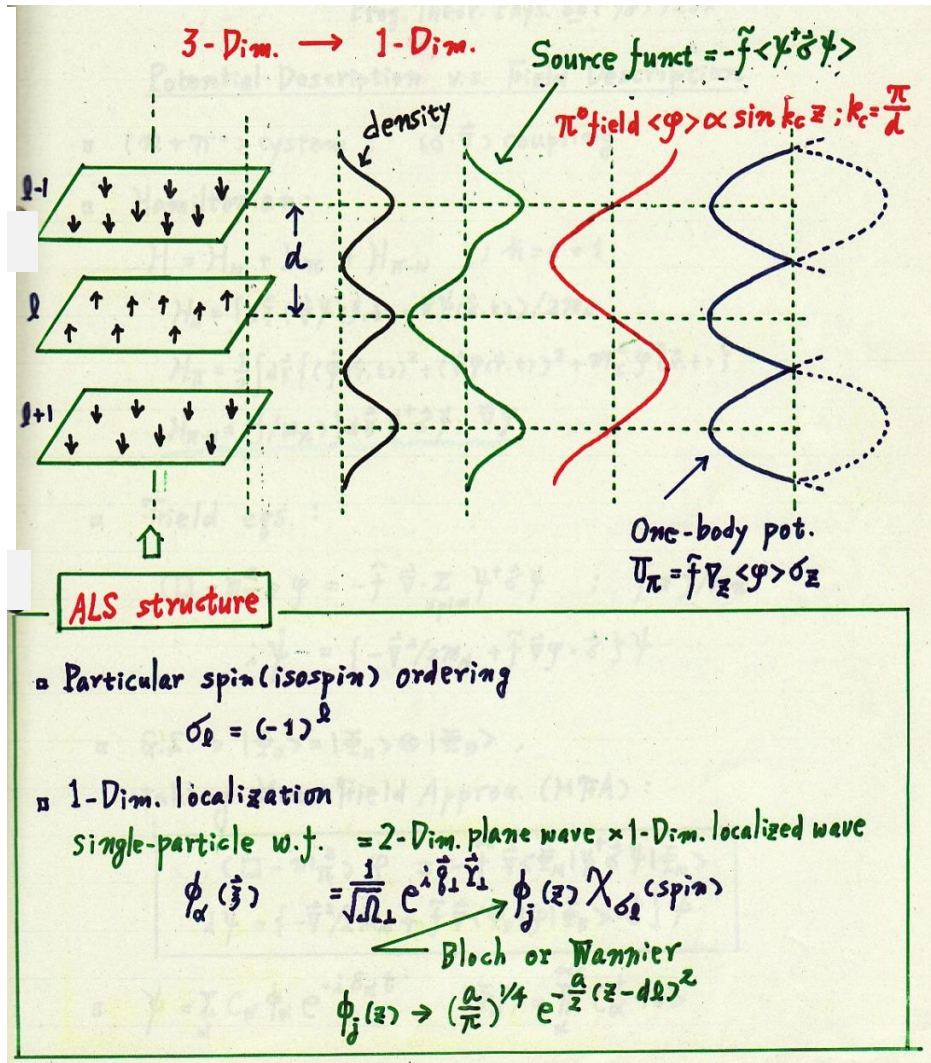 3-Dim. → 1-Dim.
Source funct = -f̃<ψ⁺σ⃗ψ>
density
π⁰ field <φ> ∝ sin k_c z ; k_c = π/d
l-1
d
l
l+1
One-body pot.
U_π = f̃ ∇_z <φ> σ_z
ALS structure
▫ Particular spin(isospin) ordering
σ_l = (-1)^l
▫ 1-Dim. localization
single-particle w.f. = 2-Dim. plane wave × 1-Dim. localized wave
ϕ_α(ξ⃗) = 1/√Ω_⊥ e^{i q⃗_⊥ r⃗_⊥} ϕ_j(z) χ_{σ_l}(spin)
Bloch or Wannier
ϕ_j(z) → (a/π)^{1/4} e^{-a/2 (z-dl)²}